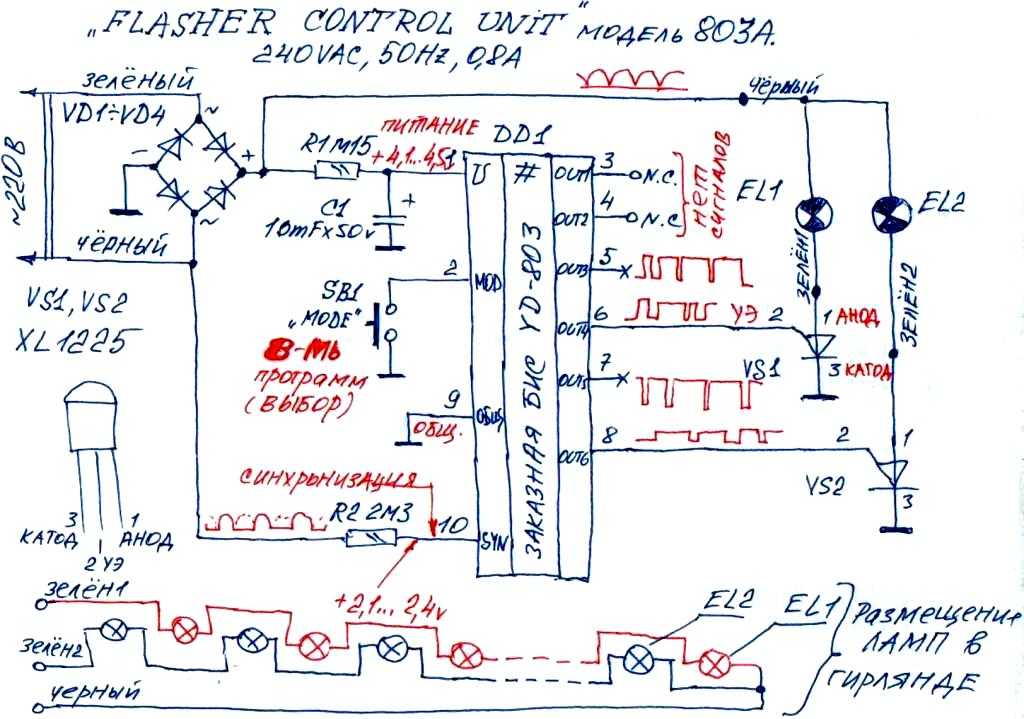 „FLASHER CONTROL UNIT" МОДЕЛЬ 803А.
240VAC, 50Hz, 0,8A
ЗЕЛЁНЫЙ
VD1÷VD4
~220В
ЧЁРНЫЙ
~
−
+
~
R1 М15
ПИТАНИЕ
+4,1...4,5
1
C1
10mF×50v
+
DD1
U
#
MOD
ОБЩ
SYN
ЗАКАЗНАЯ БИС YD-803
OUT1
OUT2
OUT3
OUT4
OUT5
OUT6
3
N.C.
4
N.C.
НЕТ СИГНАЛОВ
5
6
УЭ
7
8
2
SB1
„MODE"
8-МЬ
ПРОГРАММ
(ВЫБОР)
9
ОБЩ.
СИНХРОНИЗАЦИЯ
R2 2М3
10
+2,1... 2,4v
ЧЁРНЫЙ
EL1
EL2
ЗЕЛЁН1
ЗЕЛЁН2
2
1
АНОД
3
КАТОД
VS1
2
1
VS2
3
VS1, VS2
XL1225
3
КАТОД
1
АНОД
2 УЭ
ЗЕЛЁН1
ЗЕЛЁН2
ЧЕРНЫЙ
EL2
EL1
РАЗМЕЩЕНИЕ
ЛАМП В
ГИРЛЯНДЕ